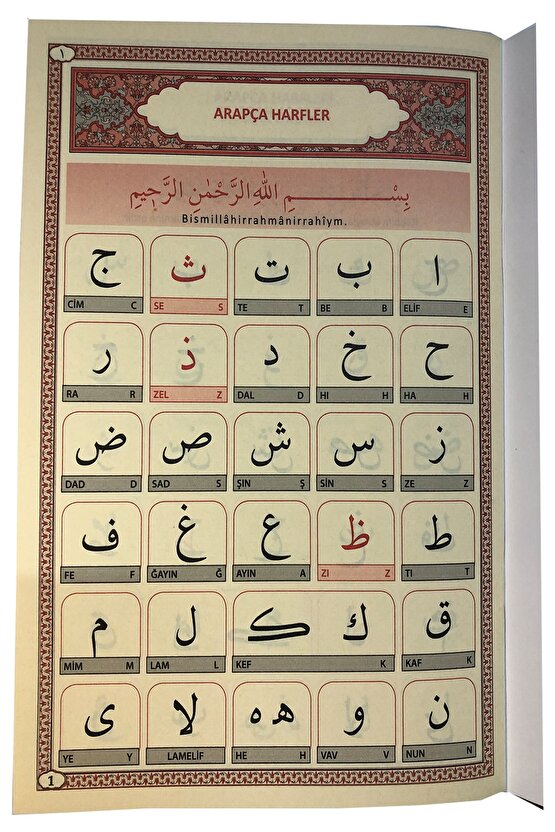 ١
ARAPÇA HARFLER
بِسْمِ اللهِ الرَّحْمٰنِ الرَّحِيمِ
Bismillâhirrahmânirrahîym.
ا ب ت ث ج
ELİF E BE B TE T SE S CİM C
ح خ د ذ ر
HA H HI H DAL D ZEL Z RA R
ز س ش ص ض
ZE Z SİN S ŞIN Ş SAD S DAD D
ط ظ ع غ ف
TI T ZI Z AYIN A ĞAYIN Ğ FE F
ق ك ڪ ل م
KAF K KEF K LAM L MİM M
ن و ه ه لا ى
NUN N VAV V HE H LAMELİF YE Y
1